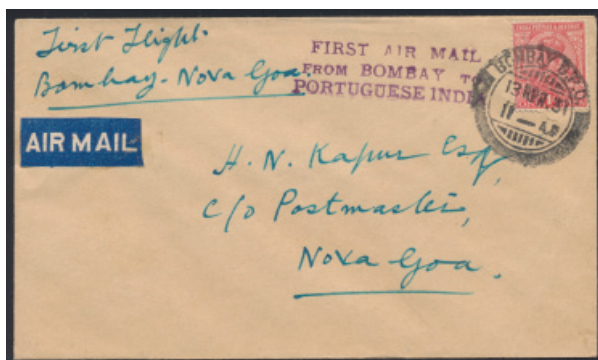 First Flight.
Bombay-Nova Goa.
FIRST AIR MAIL
FROM BOMBAY TO
PORTUGUESE INDIA
BOMBAY G.P.O.
31
11
AIR MAIL
H. N. Kapur Esq,
C/o Postmaster,
Nova Goa.